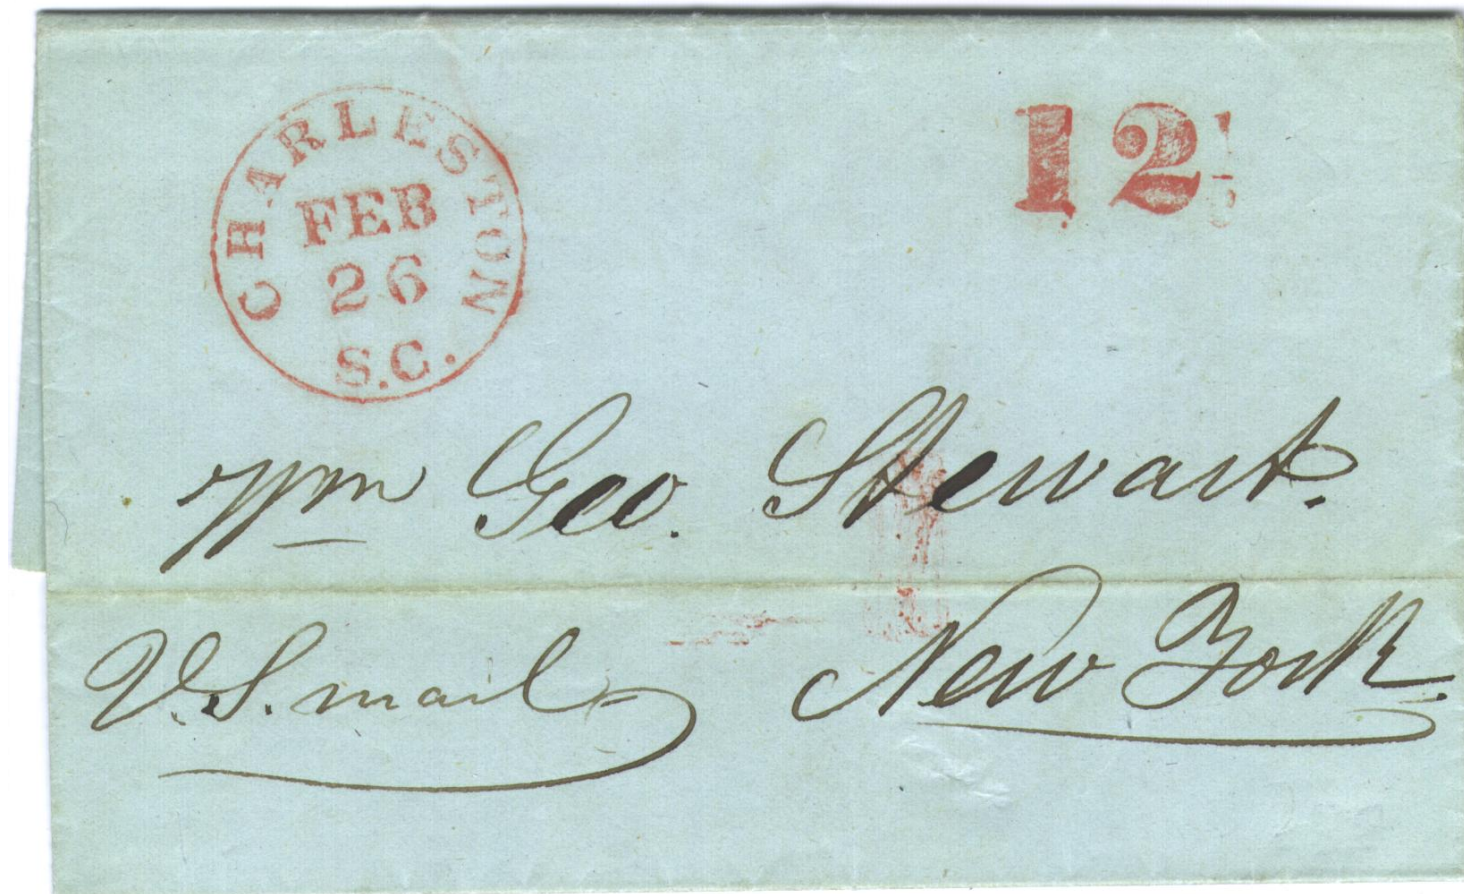 CHARLESTON
FEB
26
S.C.
12½
Geo. Stewart.
U.S. mail
New York.